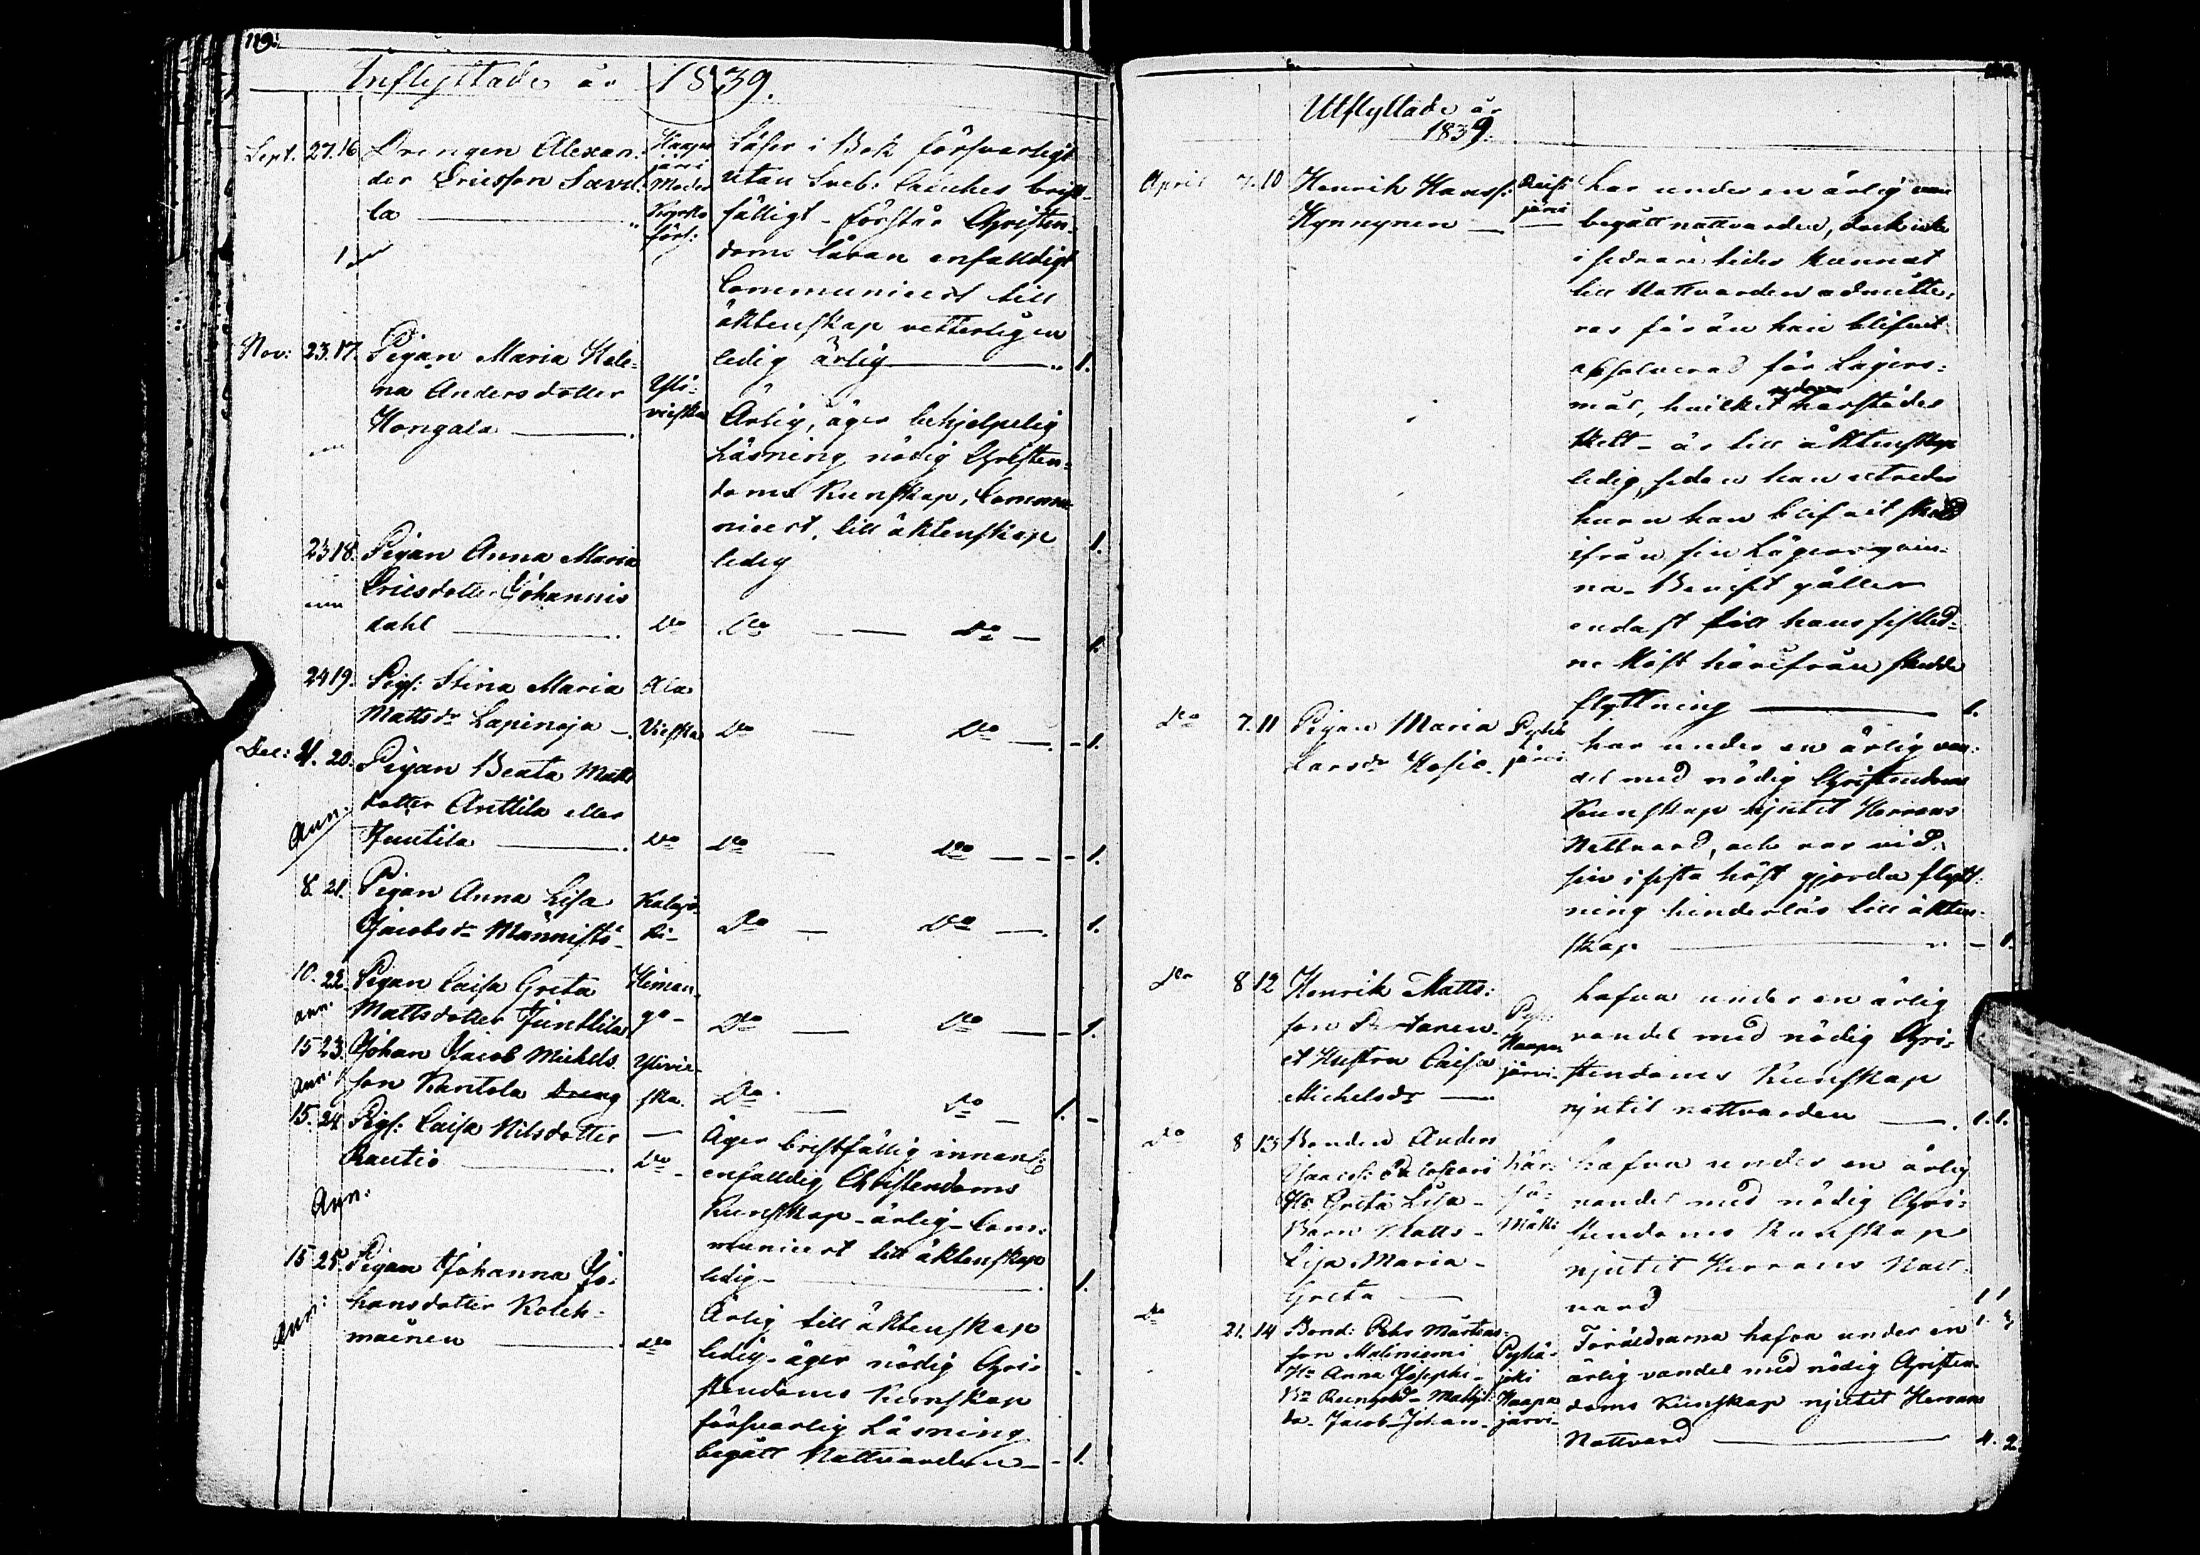 119.
Inflyttade år 1839.
Sept. 27. 16 Drengen Alexan-
der Ericsson Savi-
la
Haapa
järvi
Moder
Kyrko
förs:
Läser i Bok försvarligt
utan Sveb: Cateches brist-
fälligt - förstår Christen-
doms läran enfaldigt
Communicerat till
äktenskap vetterligen
ledig ärlig 1.
Nov: 23. 17. Pigan Maria Hele-
na Andersdotter
Kongala
Ylivieska
Ärlig, äger behjelpelig
Läsning nödig Christen-
doms Kunskap, Commu-
nicert, till äktenskap 1.
ledig
23 18. Pigan Anna Maria
Ericsdotter Johannis
dahl Do Do Do 1.
24 19. Pigs: Stina Maria Ala
Mattsdr Lapinoja Vieska Do Do 1.
Dec: 4. 20. Pigan Beata Matts
dotter Anttila eller
Ann:
Juntila Do Do Do 1.
8. 21. Pigan Anna Lisa Kalajo-
Jacobsdr Männistö ki Do Do 1.
10. 22. Pigan Caisa Greta Himan-
Ann. Mattsdotter Junttila go Do Do 1.
15 23. Johan Jacob Michels Ylivie-
Ann. son Rantola Dreng ska. Do Do 1.
15. 24 Pigs: Caisa Nilsdotter
Rautio Do
Ann.
Äger bristfällig innan-
enfaldig Christendoms
Kunskap - ärlig - Com-
municert till äktenskap
ledig 1.
15 25. Pigan Johanna Jo-
Ann: hansdotter Koleh-
mainen Do
Ärlig till äktenskap
ledig - äger nödig Chri-
stendoms Kunskap
försvarlig Läsning
begått Nattvarden 1.
Utflyttade år
1839.
April 7. 10 Henrik Hanss:
Kynnynen
Reis-
järvi
har under en ärlig van
begått nattvarden, dock icke
i sednare tider kunnat
till Nattvarden admitte-
ras för än han blifvit
absolverad för Lägers-
mål, hvilket härstädes
skett - är till äktenskap
ledig, sedan han utreder
huru han blifvit skild
ifrån sin Lägersqvin-
na - Beviset gäller
endast till hans sistled-
ne höst härifrån skedde
flyttning 1.
Do 7. 11 Pigan Maria Pyhä
Larsdr Kosio järvi
har under en ärlig van-
del med nödig Christendoms
Kunskap njutit Herrans
Nattvard, och var vid
sin i sista höst gjorda flytt-
ning hinderlös till äkten-
skap 1.
Do 8 12 Henrik Matts-
son
et Hustru Caisa
Michelsdr
Haapa
järvi
hafva under en ärlig
vandel med nödig Chri-
stendoms Kunskap
njutit nattvarden 1. 1.
Do 8 13 Bonden Anders
Isacs:
Hu Greta Lisa
Barn Matts
Lisa Maria
Greta
Här-
ma
Mäki
hafva under en ärlig
vandel med nödig Chri-
stendoms Kunskap
njutit Herrans Natt-
vard 1 1
1. 3
Do 21. 14 Bond: Petr Mårtens-
son Maliniemi
Hu Anna Josephs-
Jacob Johan
Pyhä-
joki
Haapa
järvi
Föräldrarna hafva under en
ärlig vandel med nödig Christen-
doms Kunskap njutit Herrans
Nattvard 4. 2.